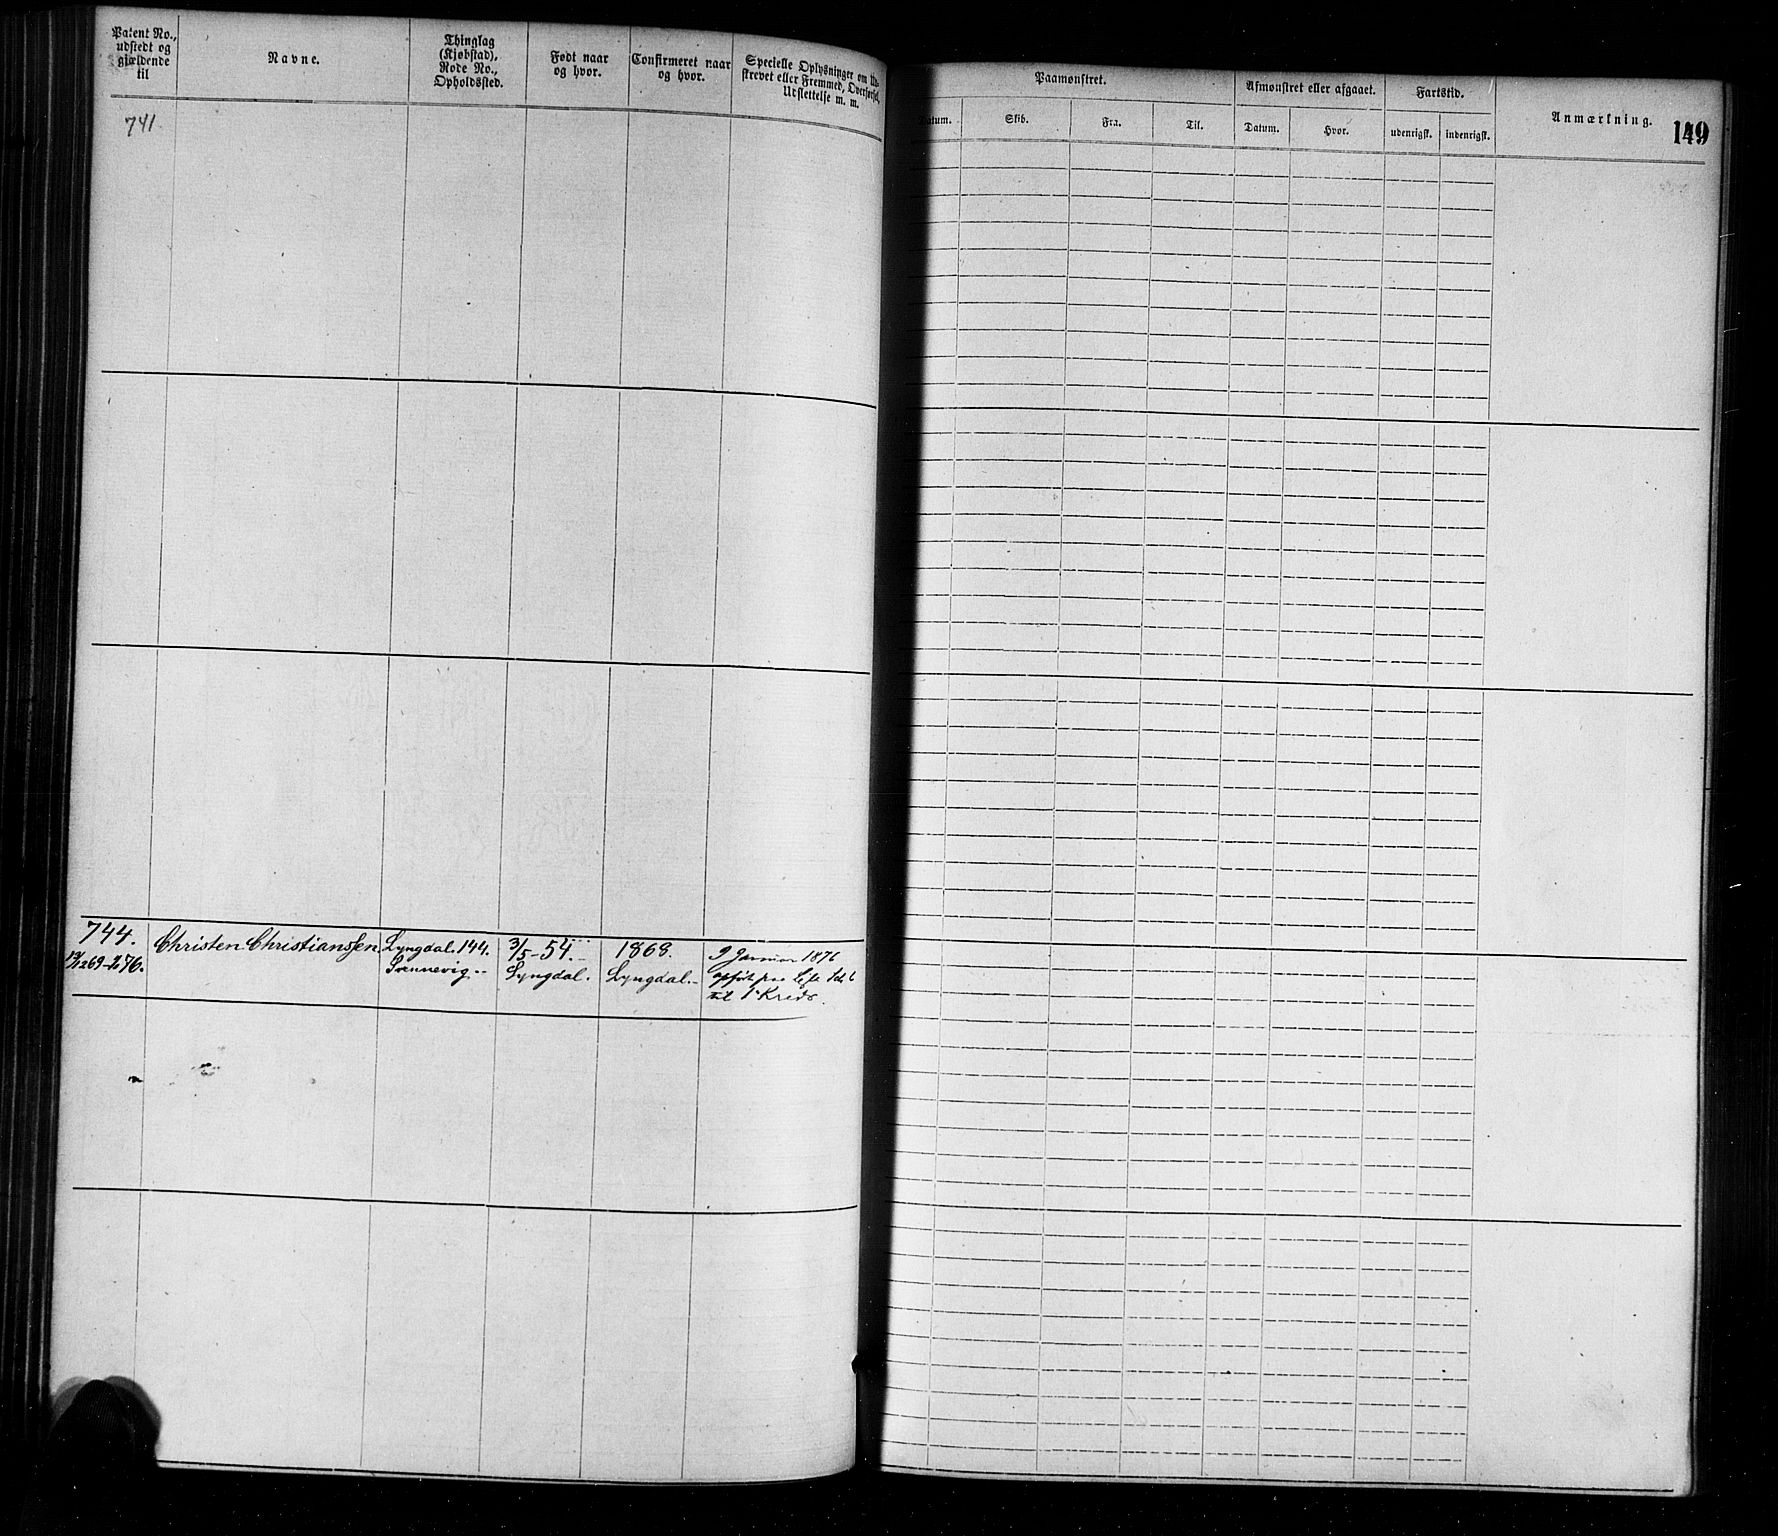 Patent No.,
udstedt og
gjældende
til
Navne.
Thinglag
(Kjøbstad),
Rode No.,
Opholdssted.
Født naar
og hvor.
Confirmeret naar
og hvor.
Specielle Oplysninger om
strevet eller Fremmed, Overførsel,
Udslettelse m. m.
Paamønstret.
Datum.
Skib.
Fra.
Til.
Afmønstret eller afgaaet.
Datum.
Hvor.
Fartstid.
udenrigsk.
indenrigsk.
Anmærkning.
149
741
744.
Christen Christianssen
Lyngdal. 144.
3/5-54.
Lyngdal.
1868.
Lyngdal.
9 Januar 1876
til 1ste Kreds.